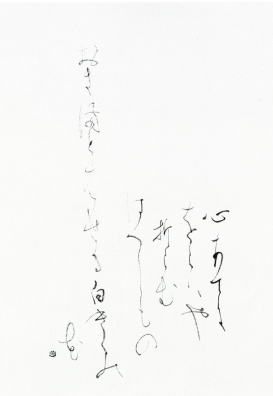 心あてに
をらはや
折らむ
はつしもの
おき満とはせる白きくの
花